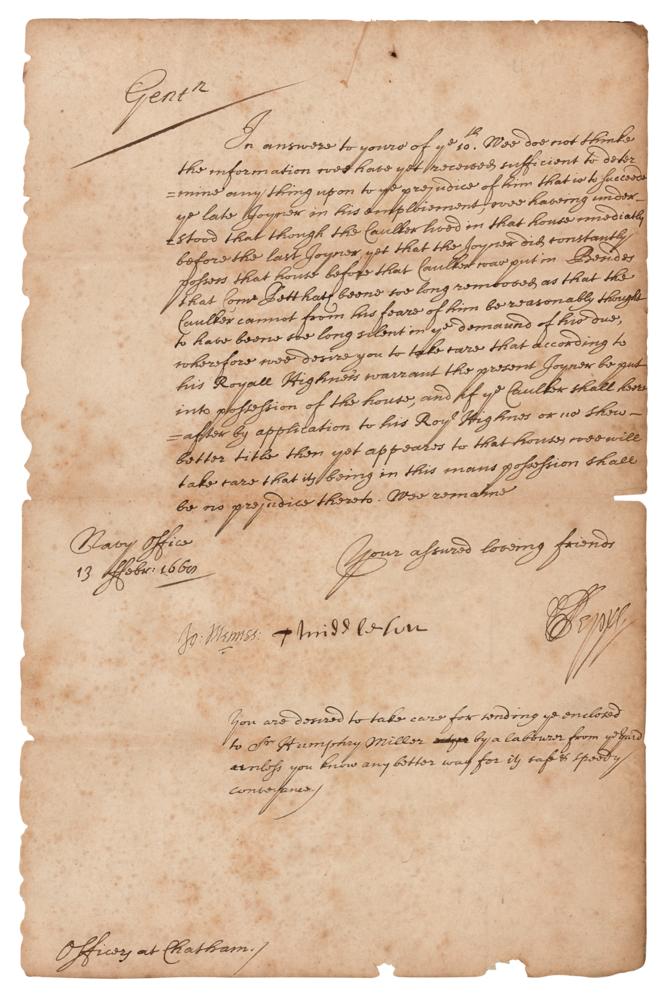 Gentn
In answere to yours of ye 10th. Wee doe not thinke
the information wee have yet received sufficient to deter
=mine any thing upon to ye prejudice of him that is to succeede
ye late Joyner in his employement, wee haveing under-
=stood that though the Caulker lived in that house im̄ediatly
before the last Joyner, yet that the Joyner did constantly
possess that house before that Caulker was put in Besides
that Comr Pett hath beene soe long removed as that the
Caulker cannot from his feare of him be reasonably thought
to have beene soe long silent in ye demand of his due,
wherefore wee desire you to take care that according to
his Royall Highness warrant the present Joyner be put
into possession of the house, and if ye Caulker shall here
=after by application to his Royll Highnes or us shew
better title then yet appeares to that house, wee will
take care that its being in this mans possession shall
be no prejudice thereto. Wee remaine
Your assured loveing friends
Navy Office
13 ffebr: 1668
Jo: Mennes: TMiddleton
SPepys
You are desired to take care for sending ye enclosed
to Sr Humphry Miller by a labourer from ye yard
unless you know any better way for its safe & speedy
conveyance/
Officers at Chatham./